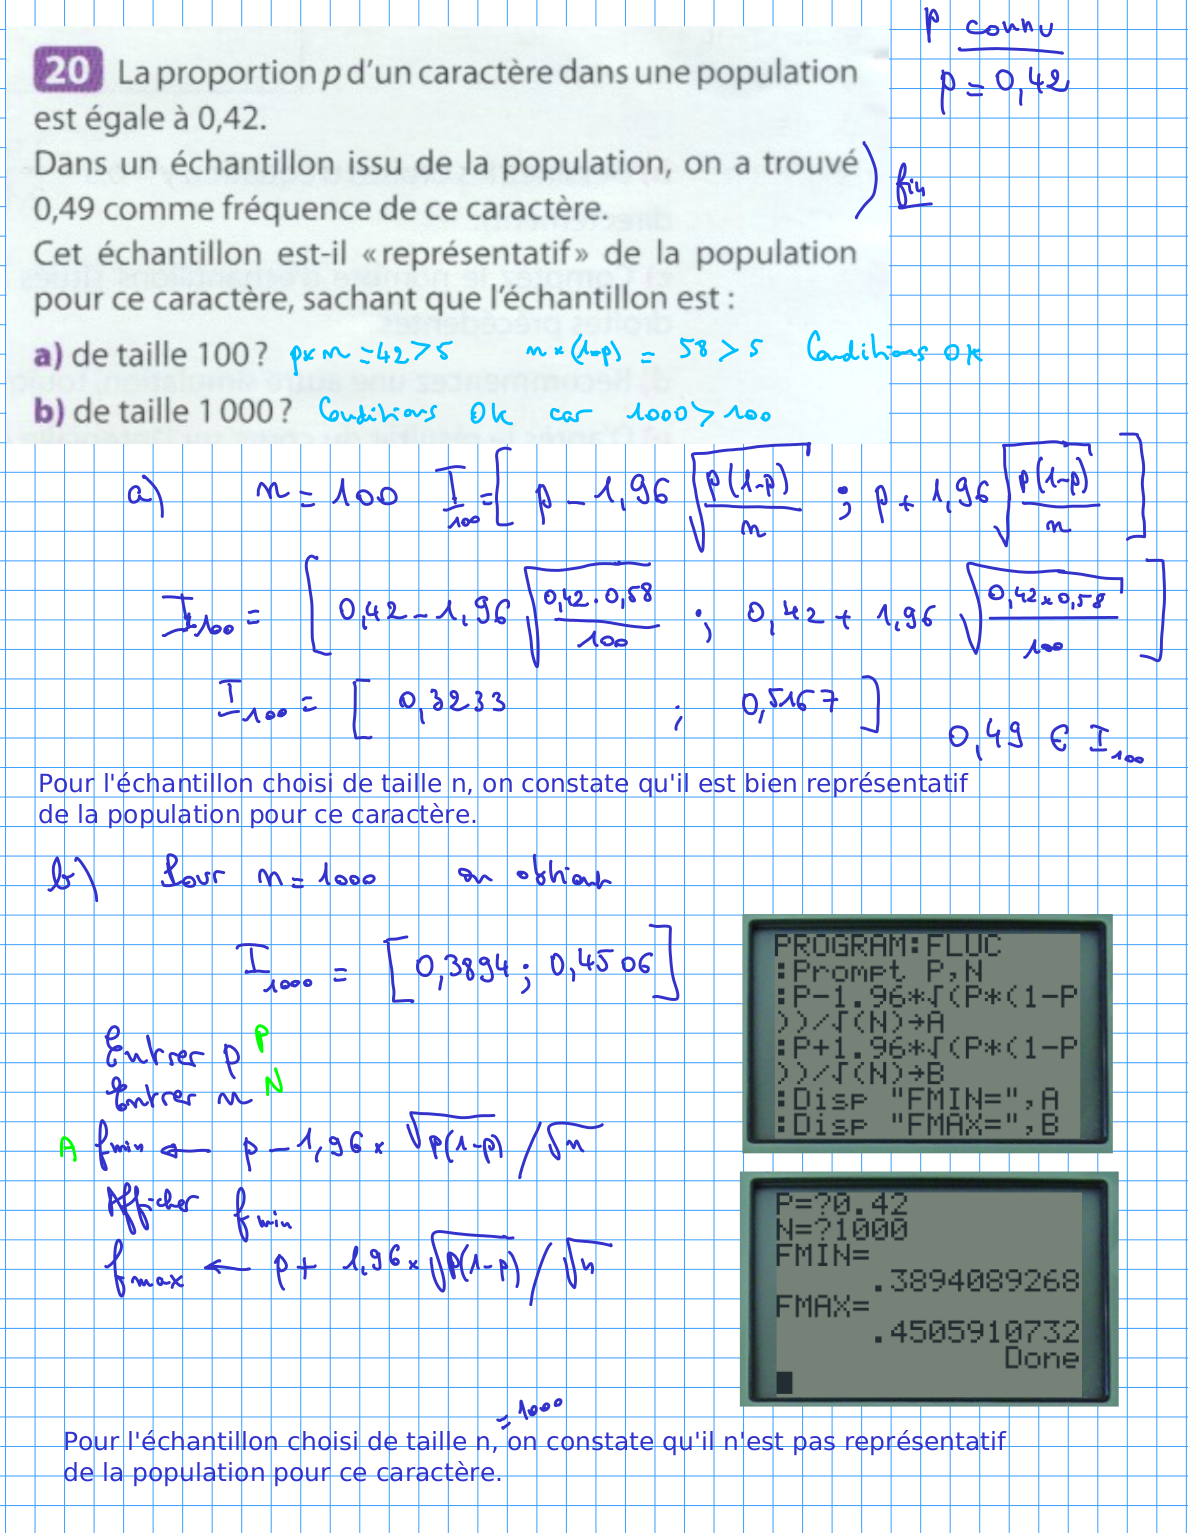 p connu
p = 0,42
20 La proportion p d'un caractère dans une population
est égale à 0,42.
Dans un échantillon issu de la population, on a trouvé
0,49 comme fréquence de ce caractère.
Cet échantillon est-il «représentatif» de la population
pour ce caractère, sachant que l'échantillon est :
a) de taille 100 ? p×n = 42 > 5 n×(1-p) = 58 > 5 Conditions OK
b) de taille 1 000 ? Conditions OK car 1000 > 100
a) n = 100 I100 = [ p - 1,96 √(p(1-p)/n) ; p + 1,96 √(p(1-p)/n) ]
I100 = [ 0,42 - 1,96 √(0,42 . 0,58/100) ; 0,42 + 1,96 √(0,42 × 0,58/100) ]
I100 = [ 0,3233 ; 0,5167 ]
0,49 ∈ I100
Pour l'échantillon choisi de taille n, on constate qu'il est bien représentatif
de la population pour ce caractère.
b) Pour n = 1000 on obtient
I1000 = [ 0,3894 ; 0,4506 ]
Entrer p P
Entrer n N
A fmin ← p - 1,96 × √p(1-p) / √n
Afficher fmin
fmax ← p + 1,96 × √p(1-p) / √n
PROGRAM:FLUC
:Prompt P,N
:P-1.96*√(P*(1-P
))/√(N)→A
:P+1.96*√(P*(1-P
))/√(N)→B
:Disp "FMIN=",A
:Disp "FMAX=",B
P=?0.42
N=?1000
FMIN=
.3894089268
FMAX=
.4505910732
Done
= 1000
Pour l'échantillon choisi de taille n, on constate qu'il n'est pas représentatif
de la population pour ce caractère.